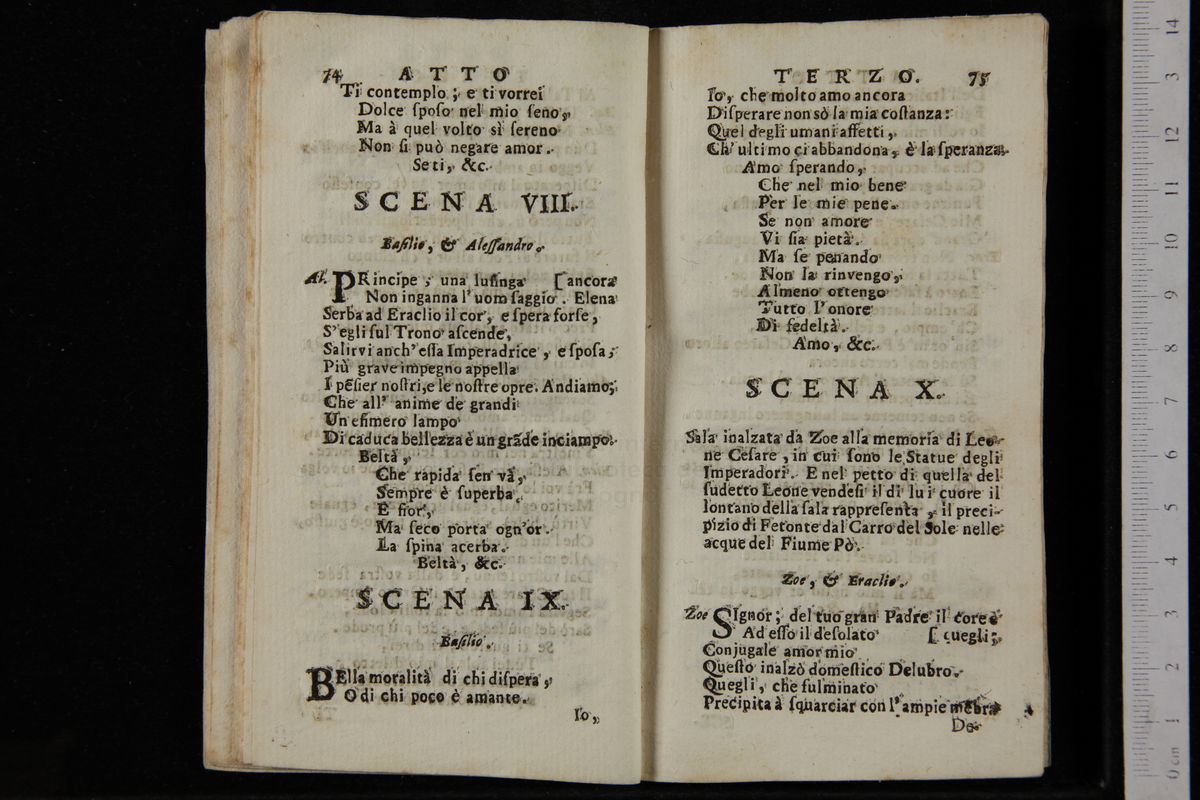 74 ATTO
Ti contemplo; e ti vorrei
Dolce ſpoſo nel mio ſeno,
Ma à quel volto sì ſereno
Non ſi può negare amor.
Se ti, &c.
SCENA VIII.
Baſilio, & Aleſſandro.
Al. PRincipe; una luſinga [ancora
Non inganna l'uom ſaggio. Elena
Serba ad Eraclio il cor, e ſpera forſe,
S'egli ſul Trono aſcende,
Salirvi anch'eſſa Imperadrice, e ſpoſa;
Più grave impegno appella
I pẽſier noſtri, e le noſtre opre. Andiamo;
Che all' anime de grandi
Un efimero lampo
Di caduca bellezza è un grãde inciampo.
Beltà,
Che rapida ſen và,
Sempre è ſuperba.
E fior,
Ma ſeco porta ogn'or.
La ſpina acerba.
Beltà, &c.
SCENA IX.
Baſilio.
BElla moralità di chi diſpera,
O di chi poco è amante.
Io,
TERZO. 75
Io, che molto amo ancora
Diſperare non sò la mia coſtanza:
Quel degli umani affetti,
Ch' ultimo ci abbandona, è la ſperanza.
Amo ſperando,
Che nel mio bene
Per le mie pene.
Se non amore
Vi ſia pietà.
Ma ſe penando
Non la rinvengo,
Almeno ottengo
Tutto l'onore
Di fedeltà.
Amo, &c.
SCENA X.
Sala inalzata da Zoe alla memoria di Leo-
ne Ceſare, in cui ſono le Statue degli
Imperadori. E nel petto di quella del
ſudetto Leone vendeſi il di lui cuore il
lontano della ſala rappreſenta, il preci-
pizio di Fetonte dal Carro del Sole nelle
acque del Fiume Pò.
Zoe, & Eraclio.
Zoe SIgnor; del tuo gran Padre il core è
Ad eſſo il deſolato [quegli;
Conjugale amor mio
Queſto inalzò domeſtico Delubro.
Quegli, che fulminato
Precipita à ſquarciar con l'ampie mẽbra
De